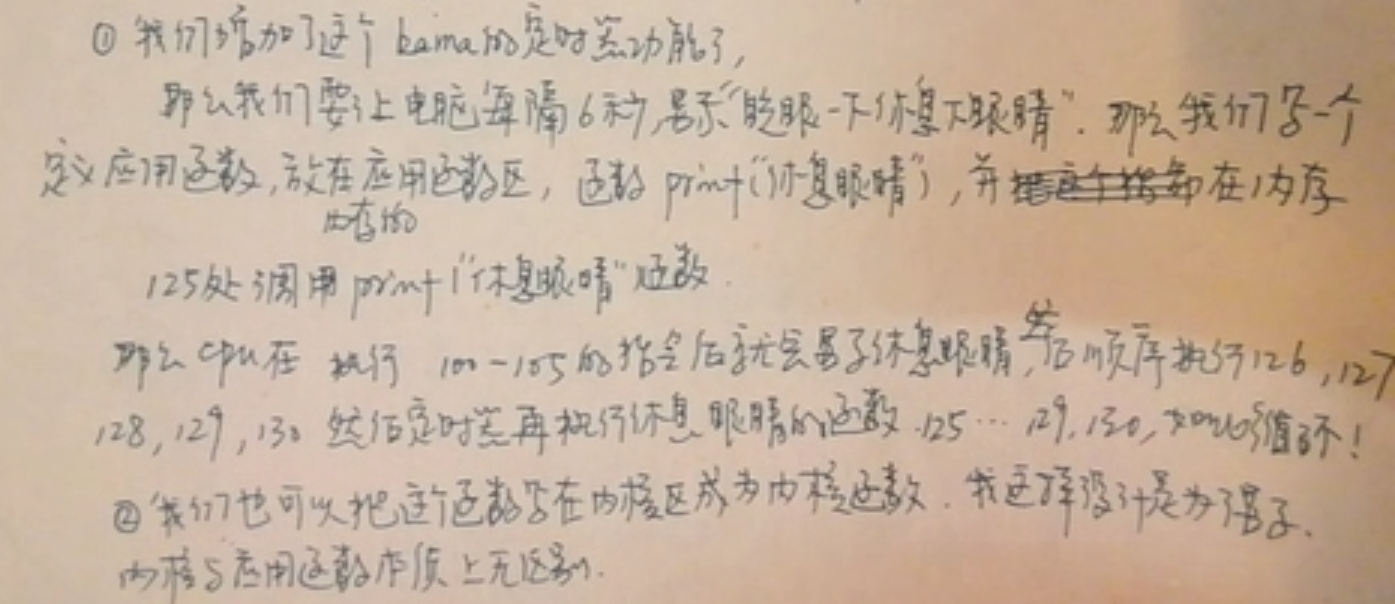 ① 我们增加了这个 bama的定时器功能了,
那么我们要让电脑每隔6秒,显示“眨眼一下休息下眼睛”. 那么我们写一个
定义应用函数,放在应用函数区, 函数 print(“休息眼睛”), 并在内存
内存的
125处调用 print(“休息眼睛”函数.
那么 cpu在 执行 100-105的指令后就会显示休息眼睛,然后顺序执行126,127
128,129,130 然后定时器再执行休息眼睛的函数.125…129,130,如此循环!
②我们也可以把这个函数写在内核区成为内核函数. 我这样设计是为了显示.
内核与应用函数本质上无区别.